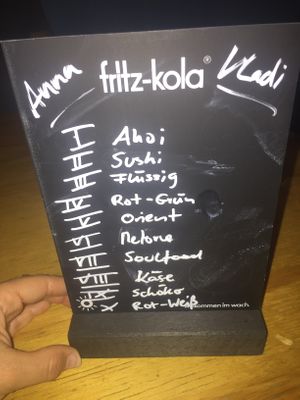 Anna fritz-kola® Vladi
Ahoi
Sushi
Flüssig
Rot-Grün
Orient
Melone
Soulfood
Käse
Schoko
Rot-Weiß
kommen im wach